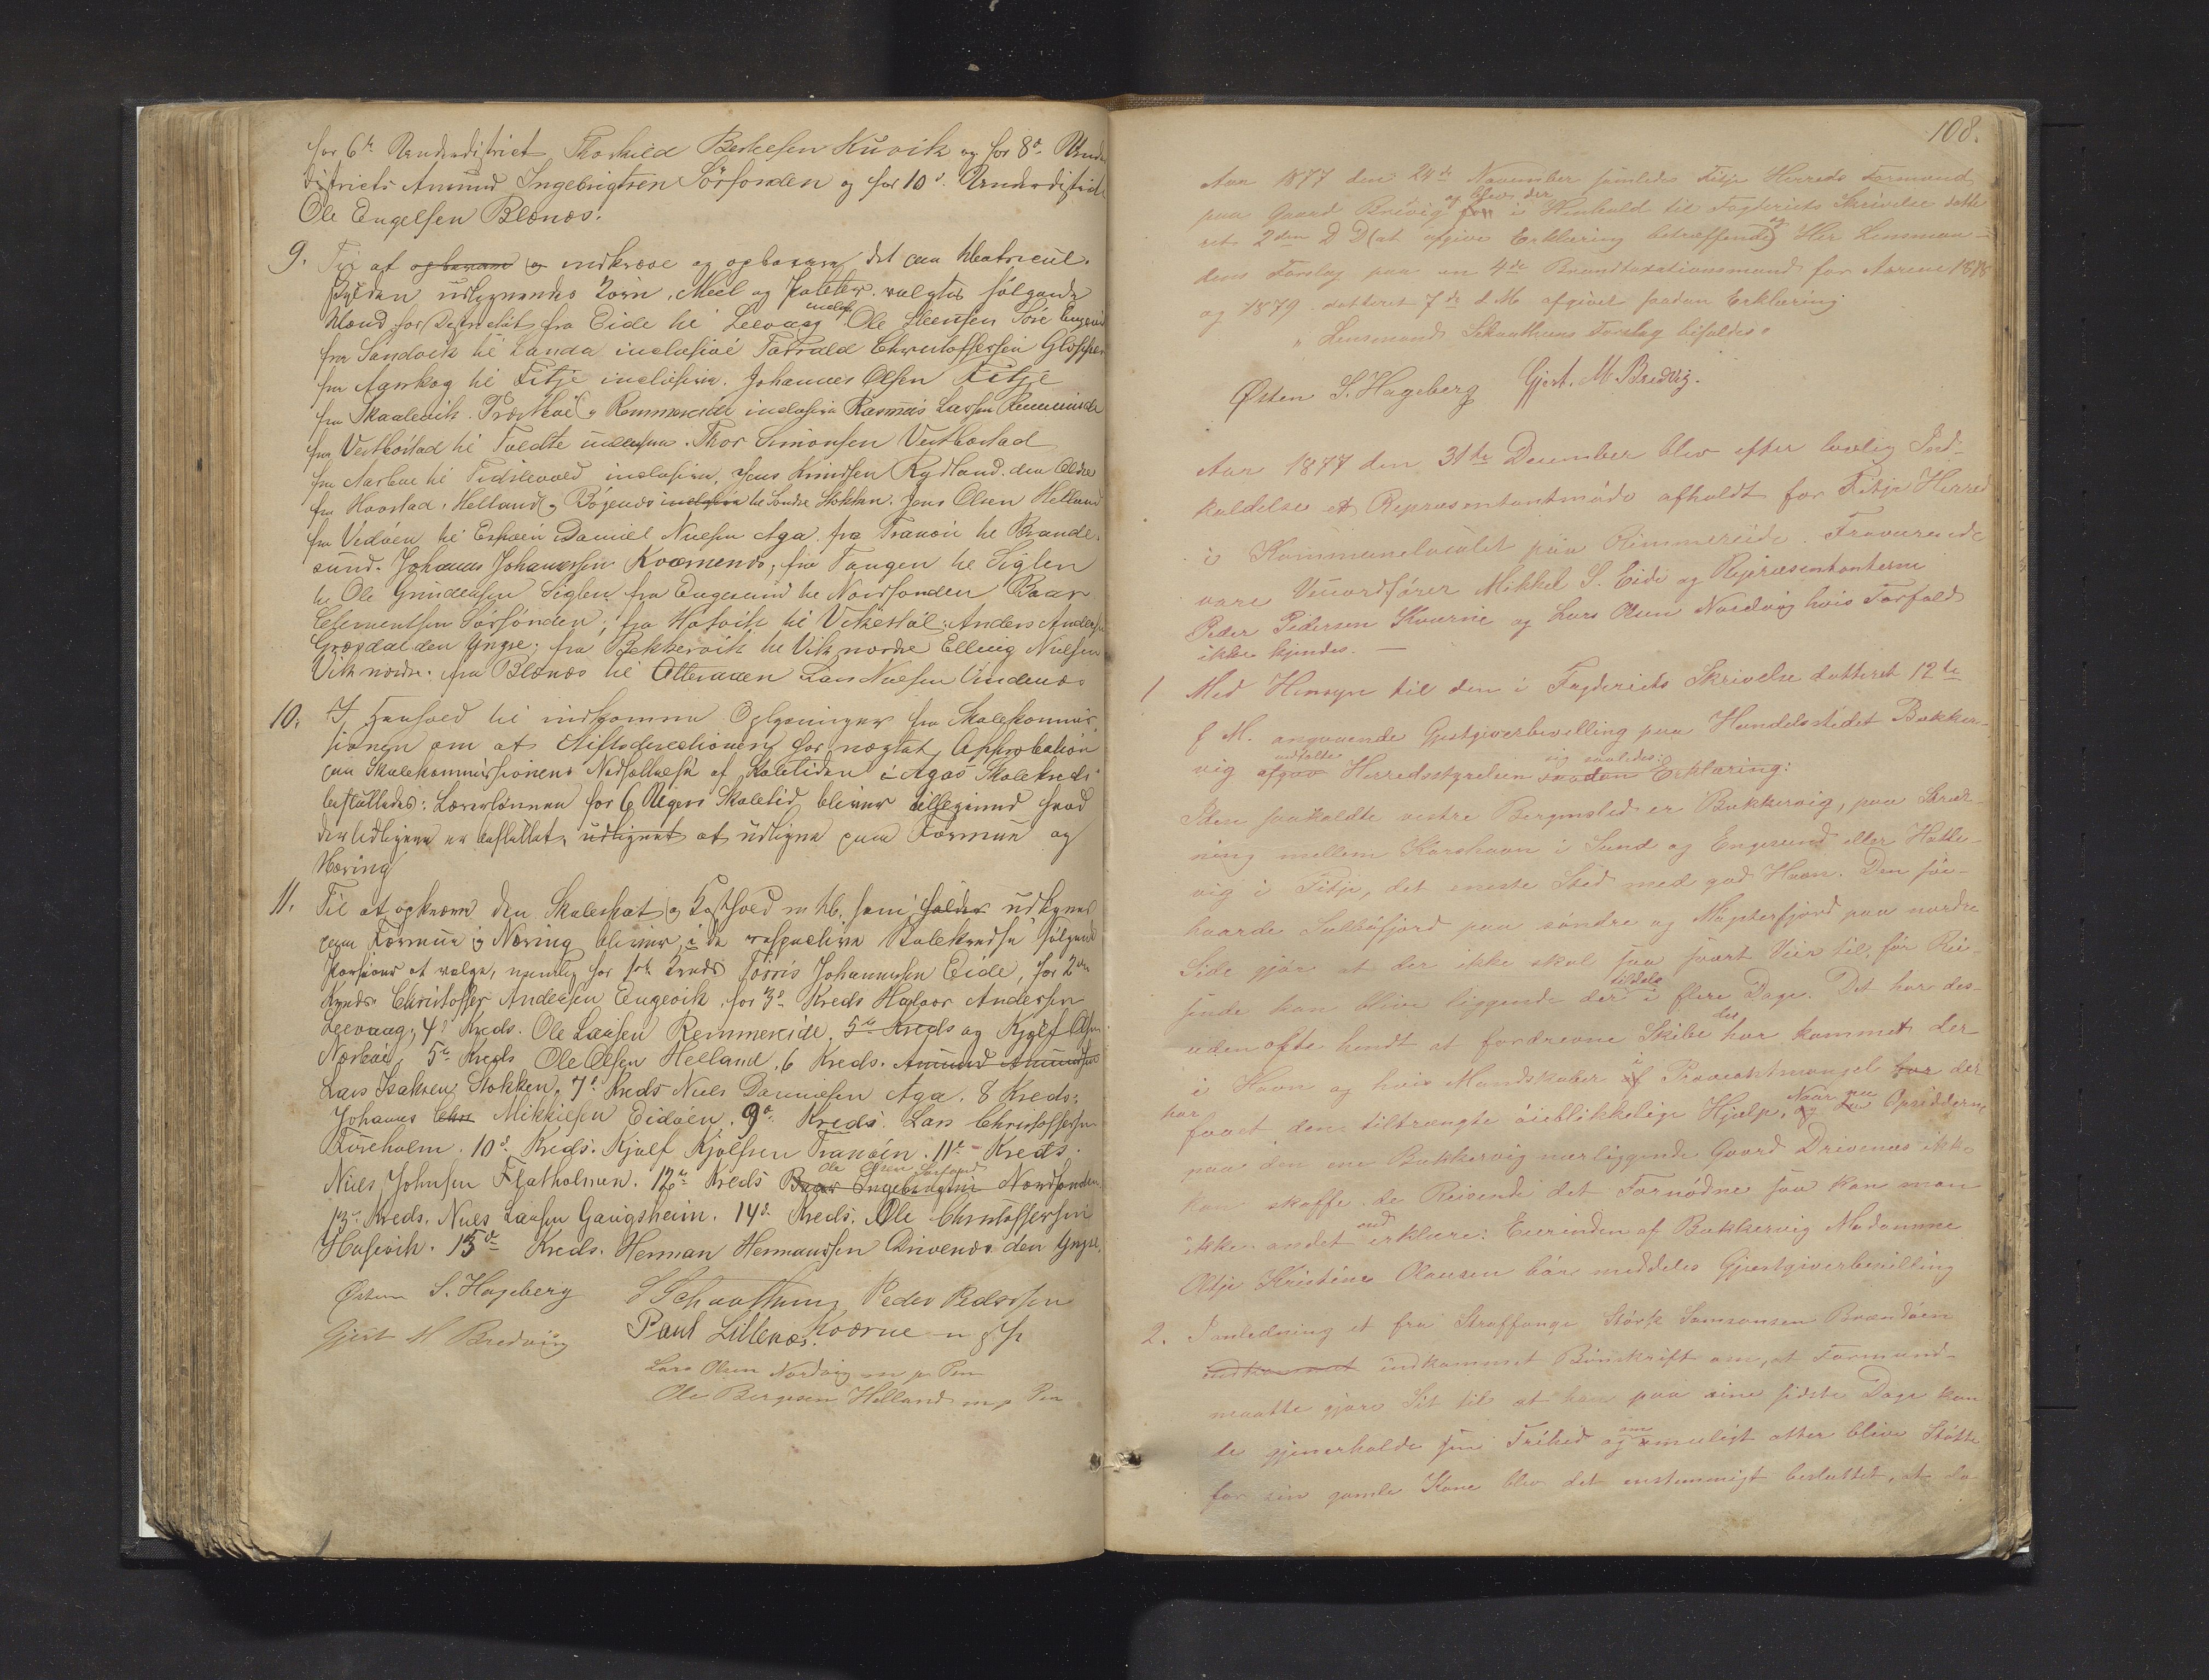 for 6te Underdistrict Thorkild Berkesen Kuvik og for 8de Under
districts Amund Ingebrigtsen Sörfonden og for 10de Underdistrict
Ole Engelsen Blænæs.
9. Til at opbevare og indkræve og opbevare det paa Matricul-
skylden udlignende Korn, Meel og Poteter valgtes følgende
Mænd, for Districtet fra Eide til Leevaag inclus Ole Steensen
fra Sandvik til Landa inclusive Tørrald Christoffersen
fra Agerskog til Fitje inclusive. Johannes Olsen Fitje
fra Skaalevik. Præsthuus og Rimmereide inclusive Rasmus Larsen Rimmereide
fra Vestbostad til Tveldte inclusive. Thor Simonsen Vestbostad
fra Aarbø til inclusive, Jens Knudsen Rydland den Ældre
fra Hovstad, Helland og Bøgenæs inclusive til Søndre Stokken. Jens Olsen Helland
fra Vedøen til Espøen Daniel Nielsen Aga. fra Tranøen til Brande-
sund. Johannes Johannessen Kværnenæs, fra Tangen til Siglen
til Ole Gundersen Siglen fra Engesund til Nordfonden Baar
Clementsen Sørfonden; fra Hofvik til Vikestöl. Anders Andersen
Græsdal den Yngre; fra Bekkervik til Vik nordre Elling Nielsen
Vik nordre. fra Blænæs til Otteraaen Lars Nielsen Vindenæs
10. I Henhold til indkomne Oplysninger fra Skolekommis-
sionen om at Stiftsdirectionen har nægtet Approbation
paa Skolekommissionens Nedsættelse af Skoletiden i Agas Skolekreds
besluttedes: Lærerlønnen for 6 Ugers Skoletid bliver tillegemed hvad
der tidligere er besluttet, udlignet at udligne paa Formue og
Næring
11. Til at opkræve den Skoleskat og Kosthold m. Vd. som falder udlignes
paa Formue og Næring bliver i de respective Skolekredse følgende
Personer at vælge, nemlig for 1ste Kreds Törris Johannessen Eide, for 2den
Kreds Christoffer Andersen Engevik, for 3de Kreds Haavor Andersen
Leevaag, 4de Kreds. Ole Larsen Remmereide. 5te Kreds og Kjølf Olsen
Nærbøe, 5te Kreds Ole Olsen Helland, 6 Kreds. Amund Amundsen
Lars Isaksen Stokken, 7de Kreds Niels Danielsen Aga. 8 Kreds:
Johannes Chr Mikkelsen Eidøen. 9de Kreds. Lars Christoffersen
Fureholm. 10de Kreds. Kjølf Kjølfsen Tranøen. 11te Kreds.
Niels Johnsen Flatholmen. 12te Kreds Baar Ingebrigtsen Ole Olsen Nordfonden.
13de Kreds. Niels Larsen Gaugsheim. 14de Kreds. Ole Christoffersen
Hafsvik. 15de Kreds. Herman Hermansen Drivenæs den Yngre.
Østen S. Hageberg S Schaathun Peder Pedersen
Gjert M Bredvig Paul Lillenæs. Kværne m f P
Lars Olsen Nordvig m p. Pen
Ole Bergesen Helland m p Pen
108.
Aar 1877 den 24de November samledes Fitje Herreds Formænd
paa Gaard Bredvig for og blev der i Henhold til Fogderiets Skrivelse datte
ret 2den D D (at afgive Erklæring betræffende) og Hr Lensman-
dens Forslag paa en 4de Brandtaxationsmand for Aarene 1878
og 1879 datteret 7de d. M. afgivet saadan Erklæring:
"Lensmand Schaathuns Forslag bifaldes"
Østen S. Hageberg Gjert. M. Bredvig.
Aar 1877 den 31te December blev efter lovlig Ind-
kaldelse et Repræsentantmøde afholdt for Fitje Herred
i Kommunelocalet paa Rimmereide. Fraværende
vare Viceordfører Mikkel S. Eide og Repræsentanterne
Peder Pedersen Kværne og Lars Olsen Nordvig hvis Forfald
ikke kjendes. —
1 Med Hensyn til den i Fogderiets Skrivelse datteret 12te
f M. angaaende Gjestgiverbevilling paa Handelsstedet Bekker-
vig afgav udtalte Herredsstyrelsen saadan sig saaledes: Erklæring:
I den saakaldte vestre Bergensled er Bekkervig, paa Stræk-
ning mellem Korshavn i Sund og Engesund eller Hatte-
vig i Fitje, det eneste Sted med god Havn. Den føi-
haarde Selbøfjord paa søndre og Møgsterfjord paa nordre
Side gjør at der ikke skal saa svært Veir til, før Rei-
sende kan blive liggende der tildels i flere Dage. Det har des-
uden ofte hendt at fordrevne Skibe der har kommet der
i Havn og hvis Mandskaber af i Proviantmangel har der
har faaet den tiltrængte øieblikkelige Hjælp, og Naar nu Opsidderne
paa den ene Bekkervig nærliggende Gaard Drivenæs ikke
kan skaffe de Reisende det Fornødne saa kan man
ikke andet end erklære: Eierinden af Bekkervig Madamme
Altje Kristine Olausen bør meddeles Gjestgiverbevilling
2. I anledning et fra Straffange Størk Samsonsen Brandøen
indkommet indkommet Bønskrift om, at Formand-
maatte gjøre Sit til at han paa sine sidste Dage kun
de gjenerholde sin Frihed og om muligt atter blive Støtte
for sin gamle Kone blev det enstemmigt besluttet, at da